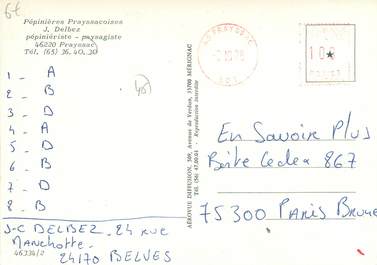 6t
Pépinières Prayssacoises
J. Delbez
pépiniériste - paysagiste
46220 Prayssac
Tél. (65) 36.40.30
1 - A
2 - B
3 - D
4 - A
5 - D
6 - B
7 - D
8 - B
J-C DELBEZ. 24 rue
Manchotte.
24170 BELVES
46334/2
AÉROVUE DIFFUSION, 309, Avenue de Verdun, 33700 MÉRIGNAC
Tél. (56) 47.00.01 - Reproduction interdite
46 PRAYSSAC
LOT
En Savoir Plus
Boite Cedex 867
75300 PARIS Brune